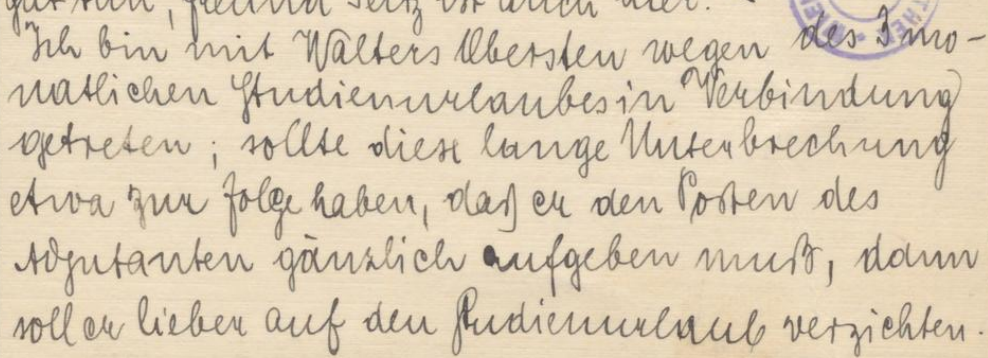 freund Seitz ist auch hier.
Ich bin mit Walters Obersten wegen des 3 mo-
natlichen Studienurlaubes in Verbindung
getreten; sollte diese lange Unterbrechung
etwa zur Folge haben, daß er den Posten des
Adjutanten gänzlich aufgeben muß, dann
soll er lieber auf den Studienurlaub verzichten.